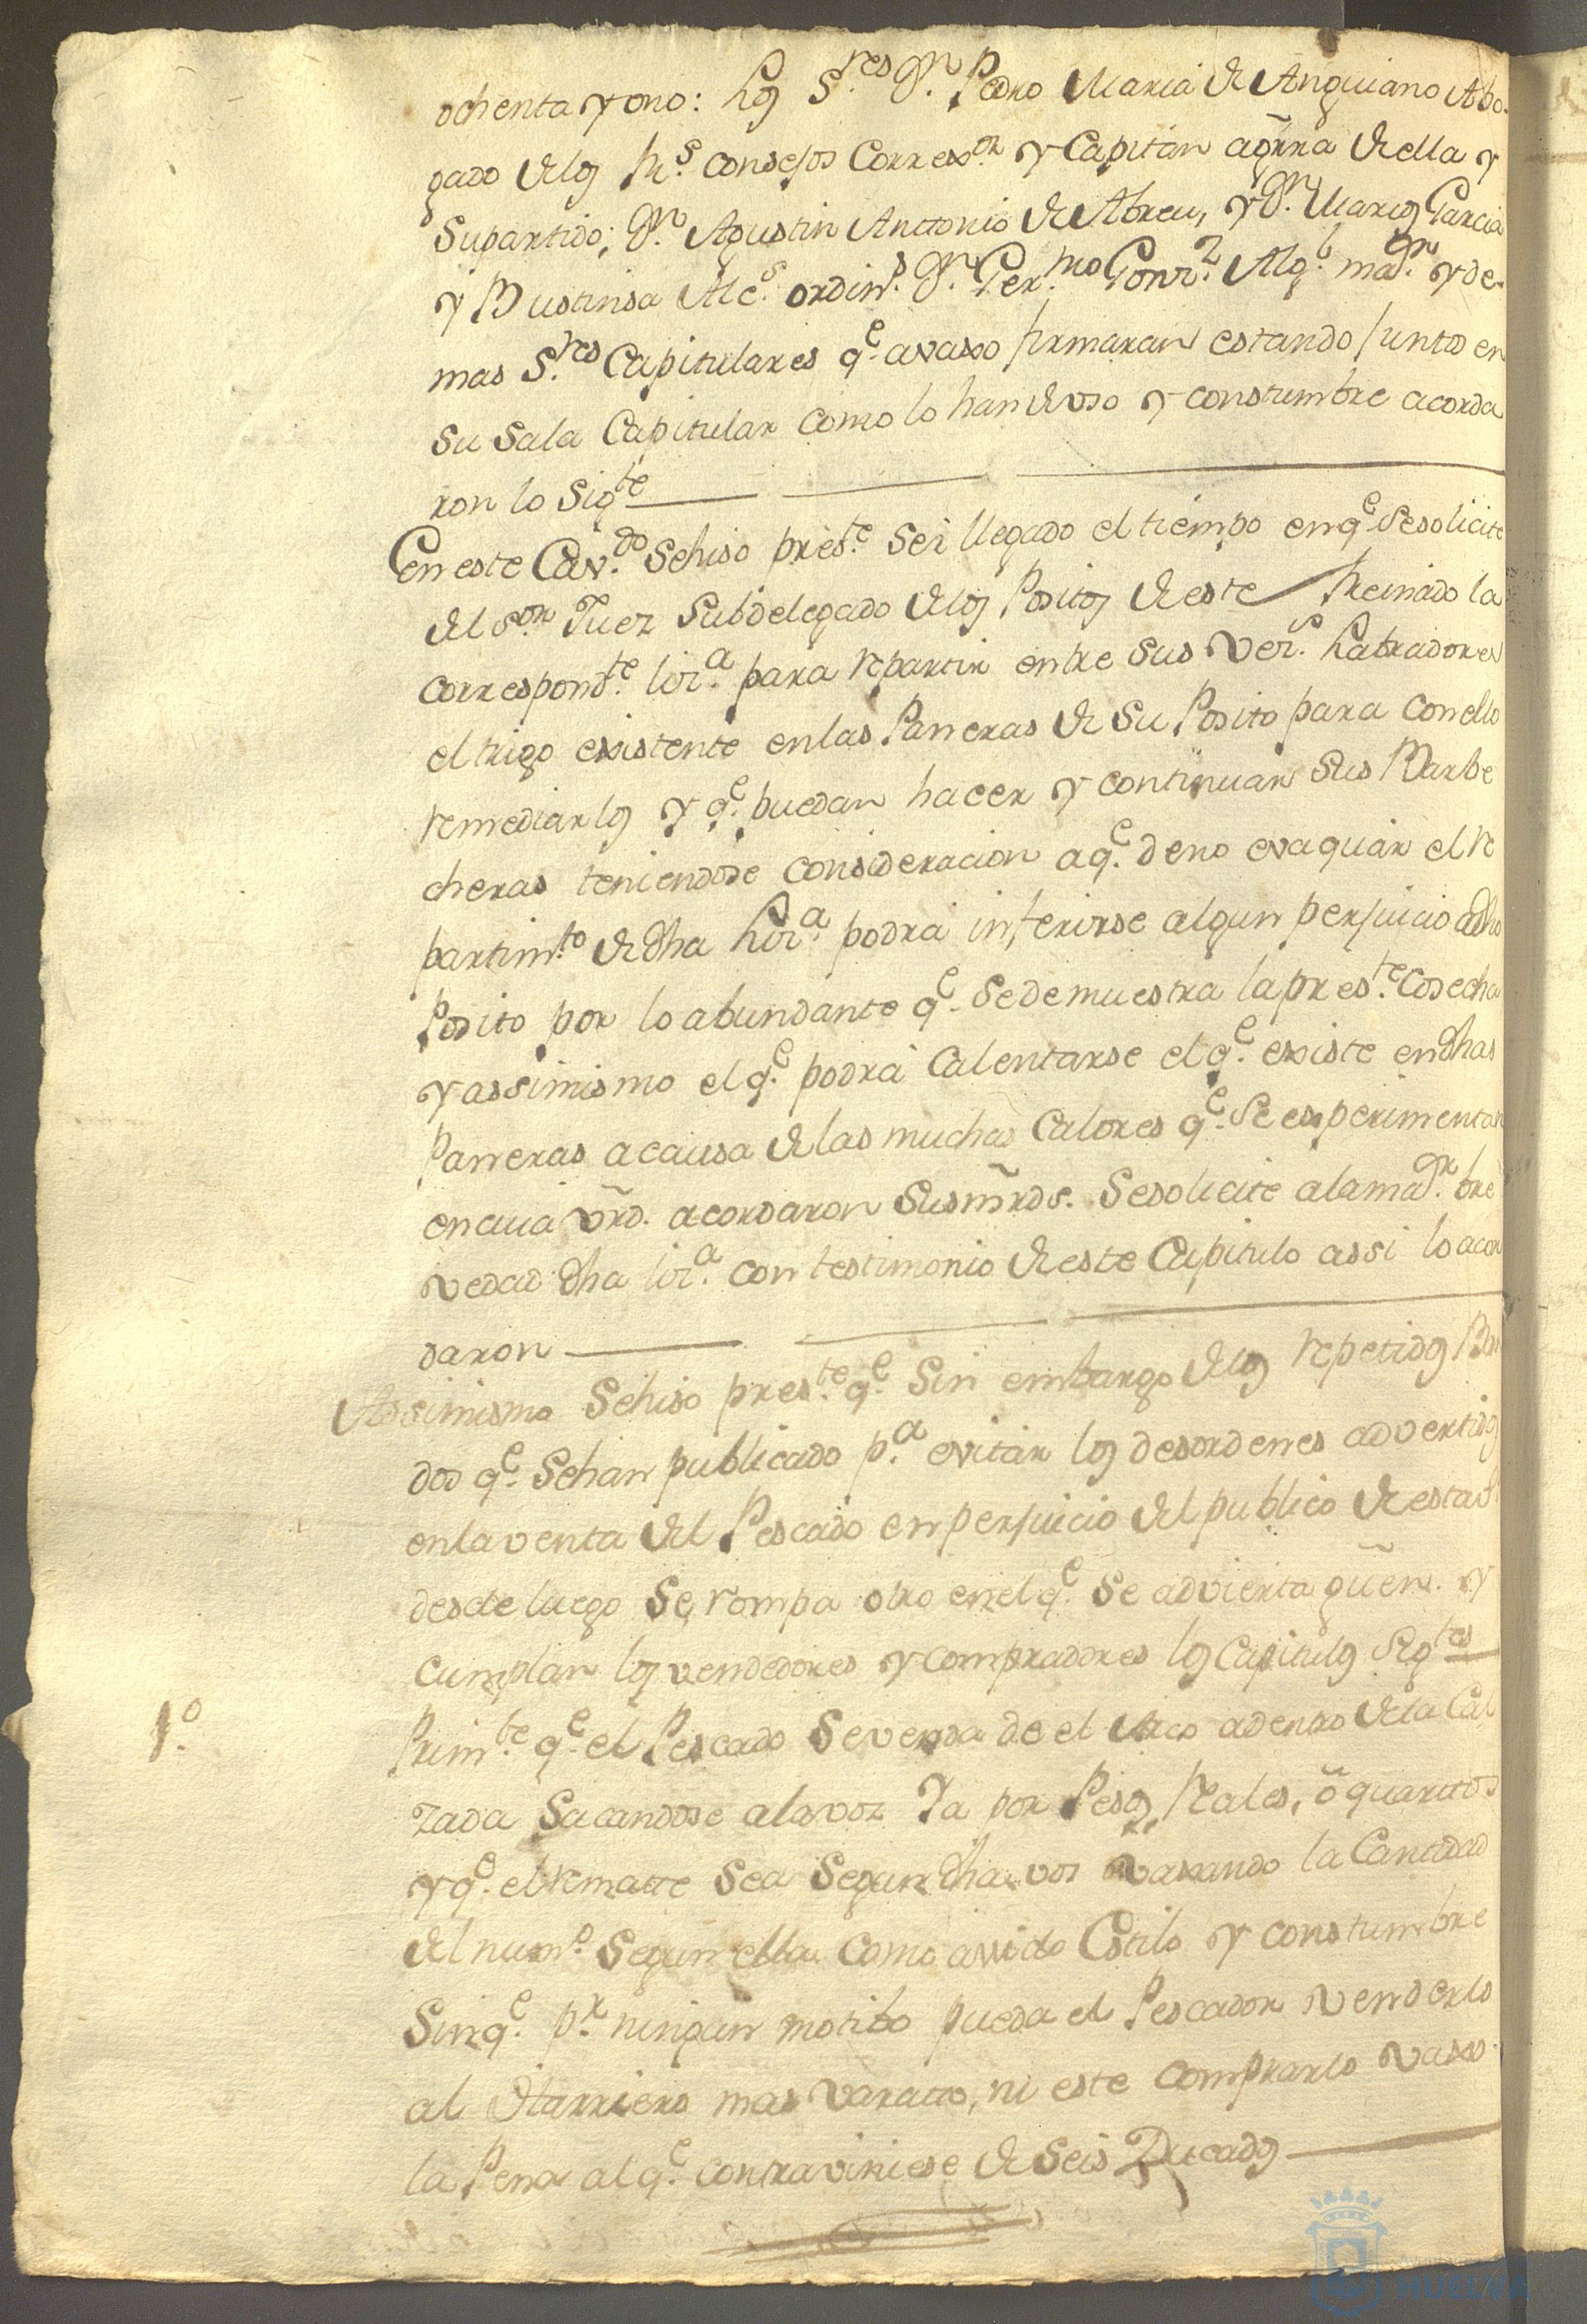 ochenta y ono: los S.res D.n Pedro Maria de Anguiano Abo-
gado de los Rs. consejos Correx.or y Capitan a grra de ella y
Su partido; D.n Agustin Anttonio de Abreu, y D.n Marcos Garcia
y Bustinsa Alc.s ordin.s D.n Ger.mo Gonz.z Alg.l ma.or y de-
mas S.res Capitulares q.e avaxo firmaran estando juntos en
su Sala Capitular como lo han de uso y constumbre acorda
ron lo Sig.te
En este Cav.do Se hiso pres.te Ser llegado el tiempo en q.e Se solicite
del S.or Juez Subdelegado de los Positos de este Reinado la
correspond.te liz.a para repartir entre sus Vez.s Labradores
el trigo existente en las Paneras de Su Posito para con ello
remediarlos y q.e puedan hacer y continuar Sus Barbe
cheras teniendose consideracion a q.e de no evaquar el re
partim.to de dha Liz.a podrá inferirse algun perjuicio a dho
Posito por lo abundante q.e Se demuestra la pres.te Cosecha
y assimismo el q.e podrá Calentarse el q.e existe en dhas
Paneras a causa de las muchas Calores q.e Se esperimentan
en cuia vrd. acordaron Sus mrds. Se solicite a la ma.or bre
vedad dha liz.a con testimonio de este Capitulo assi lo acor
daron
Assimismo Se hiso pres.te q.e Sin embargo de los repetidos Ban
dos q.e Se han publicado p.a evitar los desordenes advertidos
en la venta del Pescado en perjuicio del publico de esta V.
desde luego Se rompa otro en el q.e Se advierta guñen. y
cumplan los vendedores y compradores los Capitulos Sig.tes
1.o
Prim.te q.e el Pescado Se venda de el Arco adentro de la Cal
zada Sacandose a la voz Ya por Pesos, Reales, ó quarttos
y q.e el rematte Sea Segun dha voz vaxando la Cantidad
del num.o Segun ella como a sido Estilo y constumbre
Sin q.e p.r ningun motibo pueda el Pescador venderlo
al Harriero mas varatto, ni este comprarlo vaxo
la Pena al q.e contraviniese de Seis Ducados
HUELVA